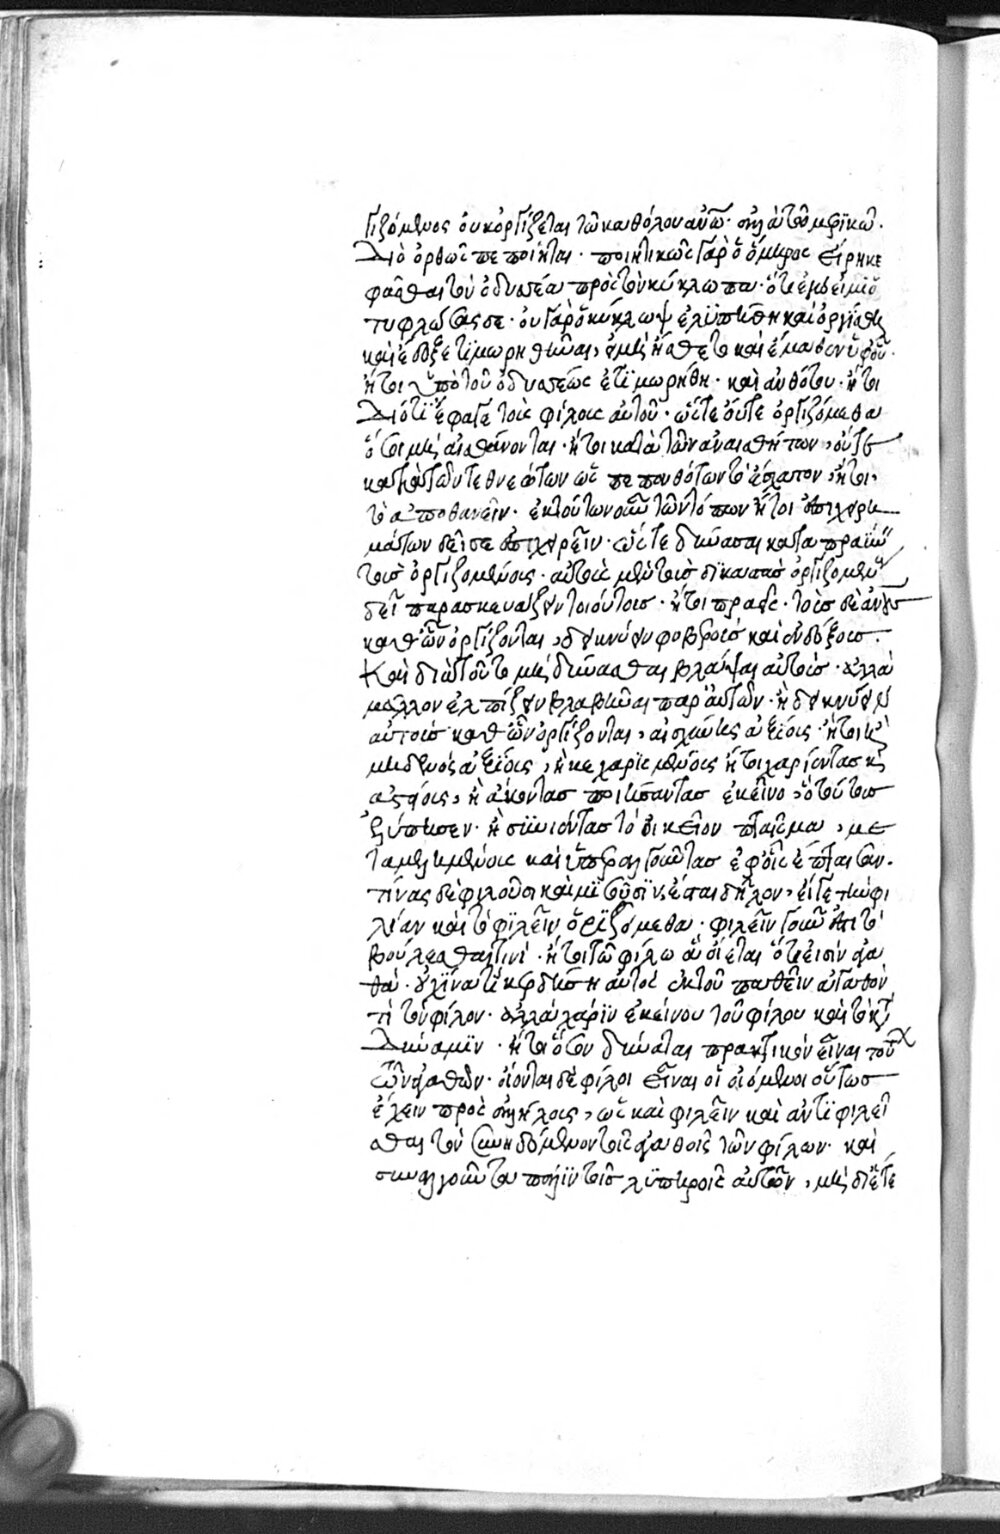 γιζόμενος οὐκ ὀργίζεται τῶ καθόλου ἀνῶ· ἀλλὰ τῶ μερικῶ.
Διὸ ὀρθῶς πεποίηται· ποιητικῶς γὰρ ὁ ὅμηρος εἴρηκε
φάσθαι τὸν ὀδυσσέα πρὸς τὸν κύκλωπα· ὅτι ἐγώ εἰμι ὁ
τυφλώσας σε· οὐ γὰρ ὁ κύκλωψ ἐλυπήθη καὶ ὀργίσθη
καὶ ἔδοξε τιμωρηθῆναι, εἰ μὴ ἤσθετο καὶ ἔμαθεν ὑφ' οὗ·
ἤτοι ὑπὸ τοῦ ὀδυσσέως ἐτιμωρήθη· καὶ ἀνθότου· ἤτοι
Διότι ἔφαγε τοὺς φίλους αὐτοῦ· ὥστε οὔτε ὀργιζόμεθα
ὅσοι μὴ αἰσθάνονται· ἤτοι κατὰ τῶν ἀναισθήτων, οὔτε
κατὰ τῶν τεθνεώτων ὡς πεπονθότων τὸ ἔσχατον, ἤτοι
τὸ ἀποθανεῖν· ἐκ τούτων οὖν τῶν τόπων ἤτοι ἐπιχειρη
μάτων δεῖ σε ἐπιχειρεῖν· ὥστε δύνασαι καταπραΰνειν
τοὺς ὀργιζομένους· αὐτοὺς μὲν τοὺς δικαστὰς ὀργιζομένους
δεῖ παρασκευάζειν τοιούτους· ἤτοι πράους· τοὺς δὲ ἀνους
καθ' ὧν ὀργίζονται, δεικνύειν φοβεροὺς καὶ ἐνδόξους.
Καὶ διὰ τοῦτο μὴ δύνασθαι βλάψαι αὐτοὺς· ἀλλὰ
μᾶλλον ἐλπίζειν βλαβῆναι παρ' αὐτῶν· ἢ δεικνύειν
αὐτοὺς καθ' ὧν ὀργίζονται, αἰσχύνης ἀξίους· ἤτοι
μηδενὸς ἀξίους, ἢ κεχαρισμένους ἤτοι χαρίεντας καὶ
ἀστείους, ἢ ἄκοντας ποιήσαντας ἐκεῖνο, ὃ τούτους
ἐλύπησεν· ἢ συνιόντας τὸ οἰκεῖον πταῖσμα, με
ταμελημένους καὶ ὑπεραλγοῦντας ἐφ' οἷς ἔπταισαν.
τίνας δὲ φιλοῦσι καὶ μισοῦσιν, ἔσται δῆλον, εἴγε τὴν φι
λίαν καὶ τὸ φιλεῖν ὁριζόμεθα· φιλεῖν γοῦν ἐστὶ τὸ
βούλεσθαι τινὶ· ἤτοι τῶ φίλω ἃ οἴεται ὅτι εἰσὶν ἀγα
θά· οὐχ ἵνα τι κερδήση αὐτὸς ἐκ τοῦ παθεῖν ἀγαθόν
τι τὸν φίλον· ἀλλὰ χάριν ἐκείνου τοῦ φίλου καὶ τὸ κατὰ
Δύναμιν· ἤτοι ὅσον δύναται πρακτικὸν εἶναι τοι
ούτων ἀγαθῶν· οἴονται δὲ φίλοι εἶναι οἱ οἰόμενοι οὕτως
ἔχειν πρὸς ἀλλήλους, ὡς καὶ φιλεῖν καὶ ἀντιφιλεῖ
σθαι τὸν συνηδόμενον τοῖς ἀγαθοῖς τῶν φίλων· καὶ
συναλγοῦντα πάλιν τοῖς λυπηροῖς αὐτῶν, μὴ δι' ἕτε